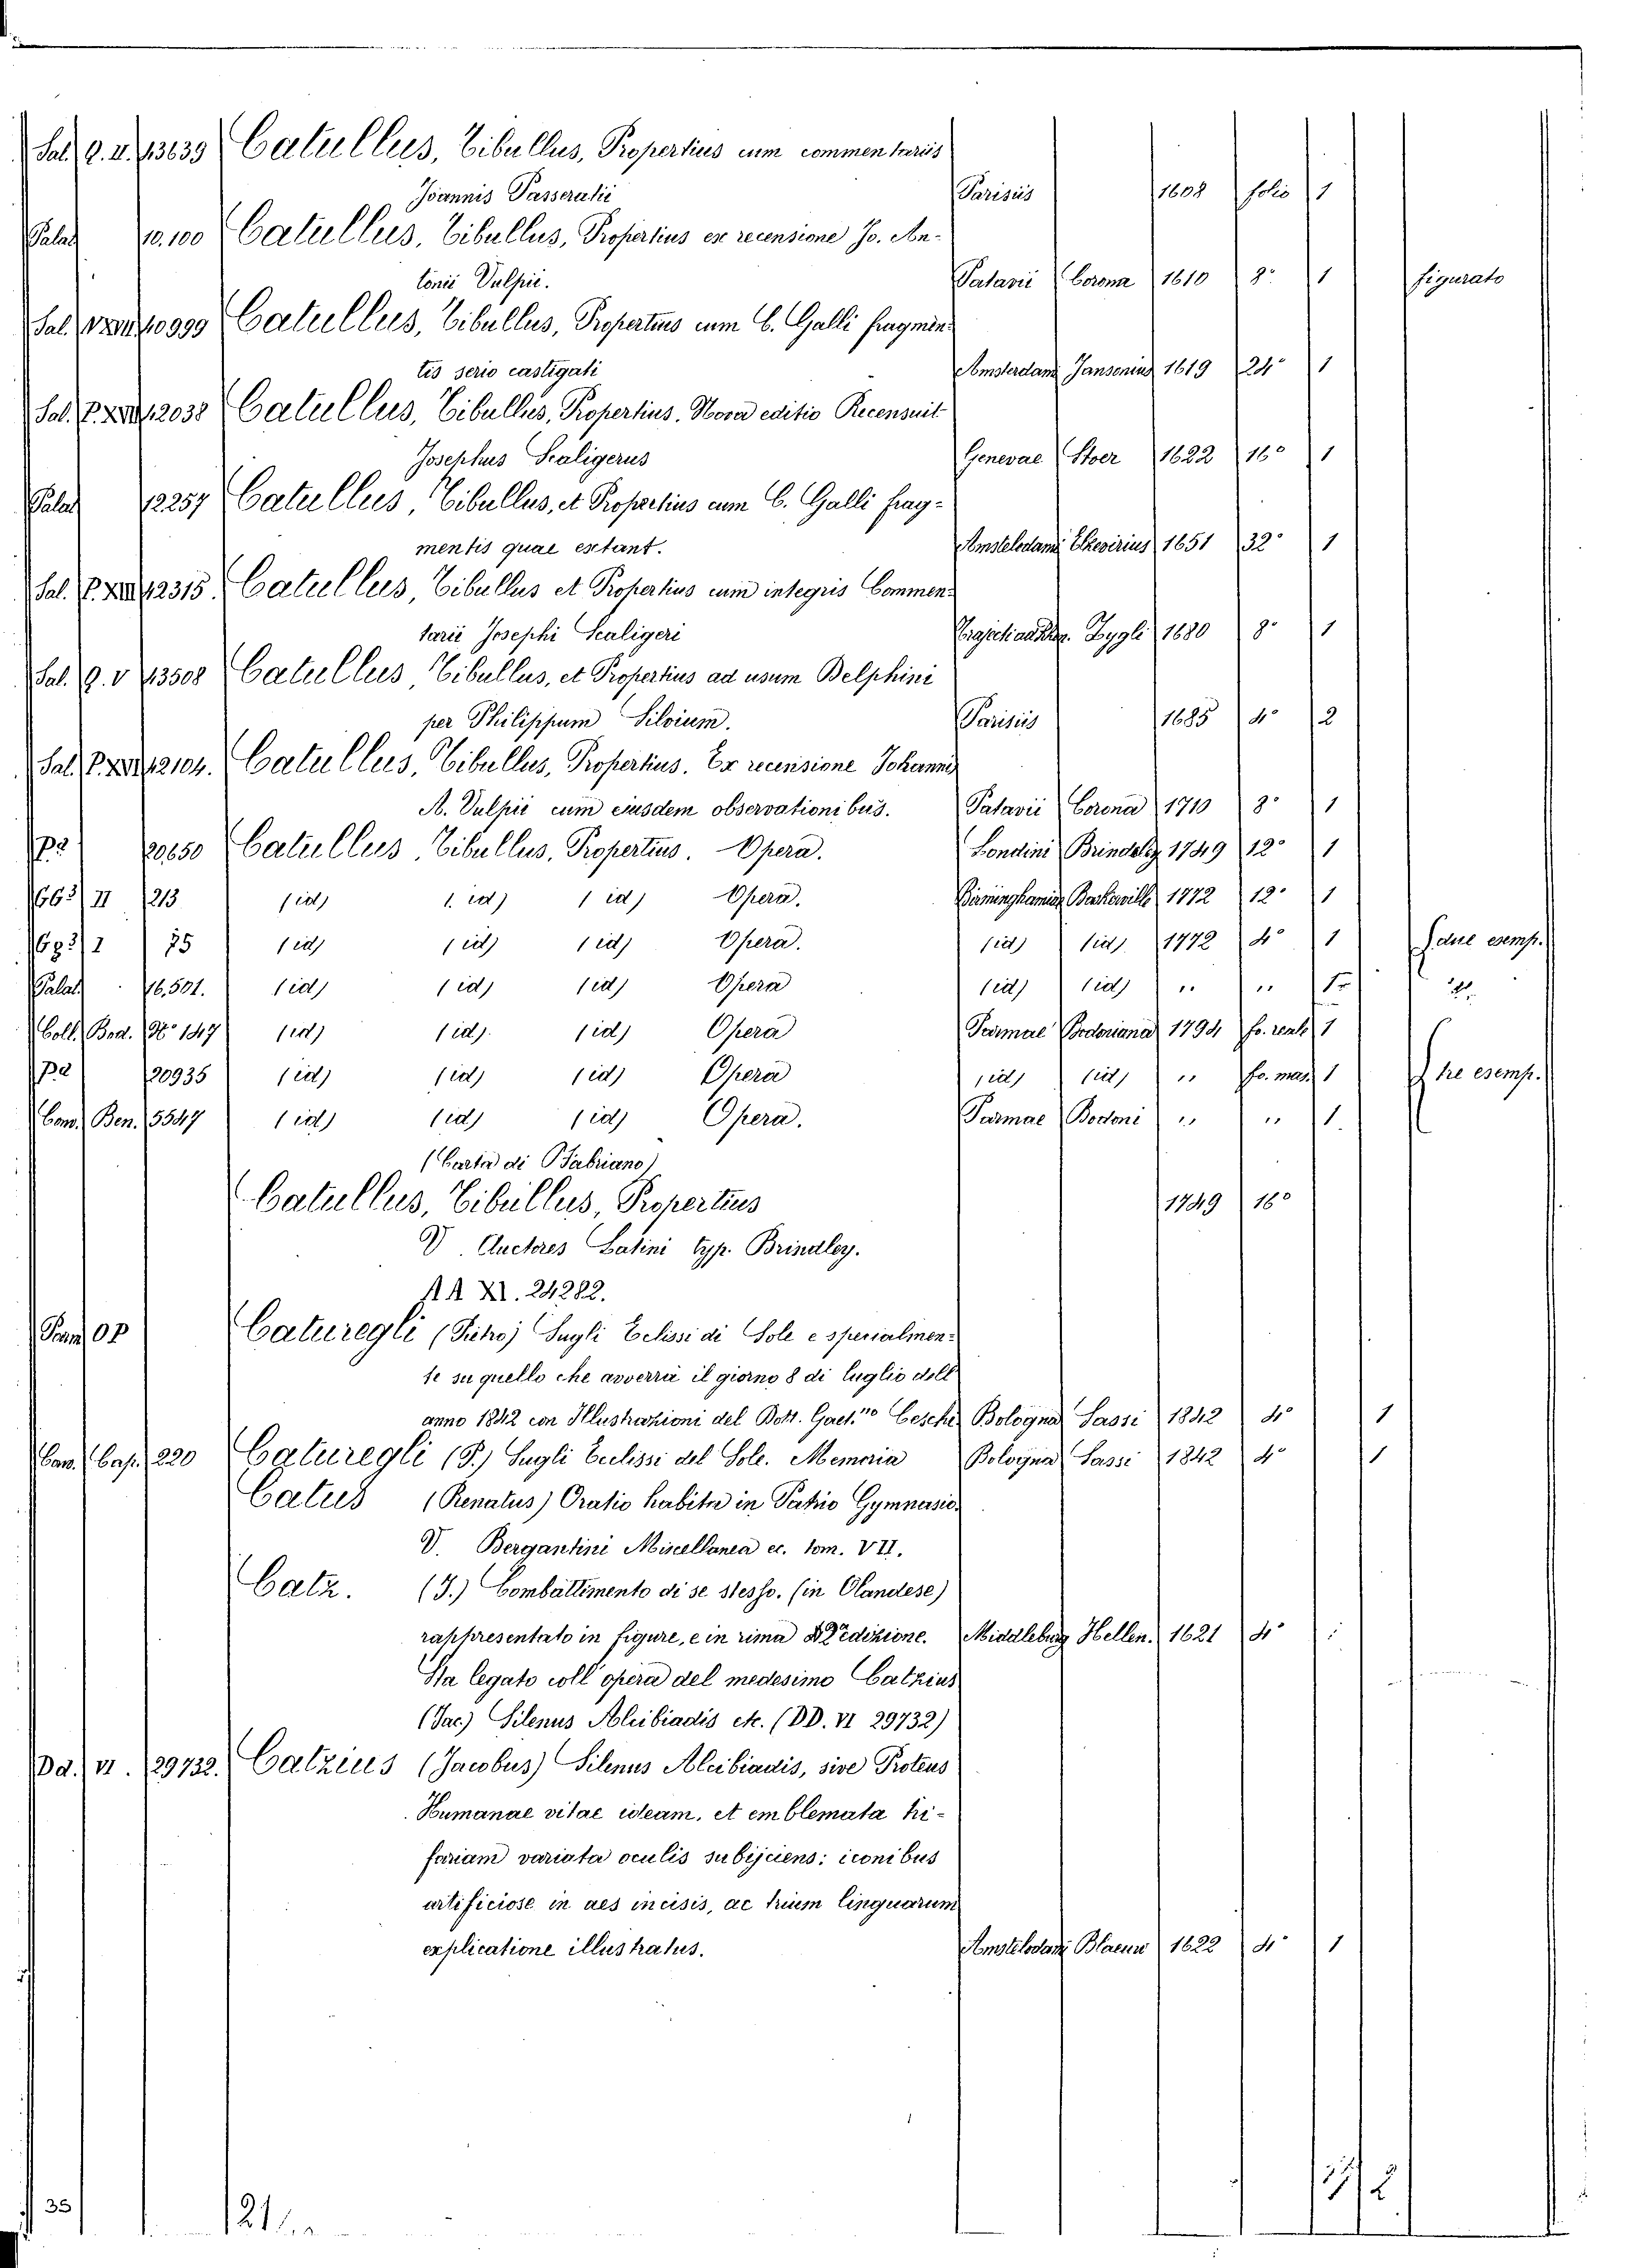 Sal. Q. II. 13639 Catullus, Tibullus, Propertius cum commentariis
Joannis Passeratii Parisiis 1608 folio 1
Palat 10.100 Catullus, Tibullus, Propertius ex recensione Jo. An-
tonii Vulpii. Patavii Corona 1610 8° 1 figurato
Sal. 10999 Catullus, Tibullus, Propertius cum C. Galli fragmen-
tis serio castigati Amsterdam Jansonius 1619 24° 1
Sal. P. XIII 12038 Catullus, Tibullus, Propertius. Nova editio Recensuit
Josephus Scaligerus Genevae Stoer 1622 16° 1
Palat 12257 Catullus, Tibullus, et Propertius cum C. Galli frag-
mentis quae extant. Amstelodami Elzevirius 1651 32° 1
Sal. P. XIII 12315. Catullus, Tibullus et Propertius cum integris Commen-
tarii Josephi Scaligeri Zygli 1680 8° 1
Sal. Q. V 13508 Catullus, Tibullus, et Propertius ad usum Delphini
per Philippum Silvium. Parisiis 1685 4° 2
Sal. P. XIII 12104. Catullus, Tibullus, Propertius. Ex recensione Johannis
A. Vulpii cum eiusdem observationibus. Patavii Corona 1710 8° 1
P2 20650 Catullus, Tibullus, Propertius. Opera. Londini Brindely 1749 12° 1
663 II 213 (id) (id) (id) Opera. Birminghamiae Baskerville 1772 12° 1
693 I 75 (id) (id) (id) Opera. (id) (id) 1772 4° 1 due esemp.
Palat 16,501. (id) (id) (id) Opera (id) (id) " " 1 2.
Coll. Bod. N° 147 (id) (id). (id) Opera Parmae Bodoniana 1794 fo. reale 1
P2 20935 (id) (id) (id) Opera (id) (id) " fo. mass 1 tre esemp.
Cam. Ben. 5547 (id) (id) (id) Opera. Parmae Bodoni " " 1.
(Carta di Fabriano)
Catullus, Tibullus, Propertius 1749 16°
V. Auctores Latini typ. Brindley.
AA XI. 24282.
OP Caturegli (Pietro) Sugli Eclissi di Sole e specialmen-
te su quello che avverrà il giorno 8 di luglio dell
anno 1842 con Illustrazioni del Dott. Gaet.no Ceschi Bologna Sassi 1842 4° 1
Cam. Cap. 220 Caturegli (P.) Sugli Ecclissi del Sole. Memoria Bologna Sassi 1842 4° 1
Catus (Renatus) Oratio habita in Patrio Gymnasio.
V. Bergantini Miscellanea ec. tom. VII.
Catz. (J.) Combattimento di se stesso. (in Olandese)
rappresentato in figure, e in rima Edizione. Middleburg Hellen. 1621 4° :
Sta legato coll' opera del medesimo Catzius
(Jac.) Silenus Alcibiadis etc. (DD. VI 29732)
Dd. VI. 29732. Catzius (Jacobus) Silenus Alcibiadis, sive Proteus
Humanae vitae ideam, et emblemata tri-
fariam variata oculis subijciens: iconibus
artificiose in aes incisis, ac trium linguarum
explicatione illustratus. Amstelodami Blaeuw 1622 4° 1
35 121